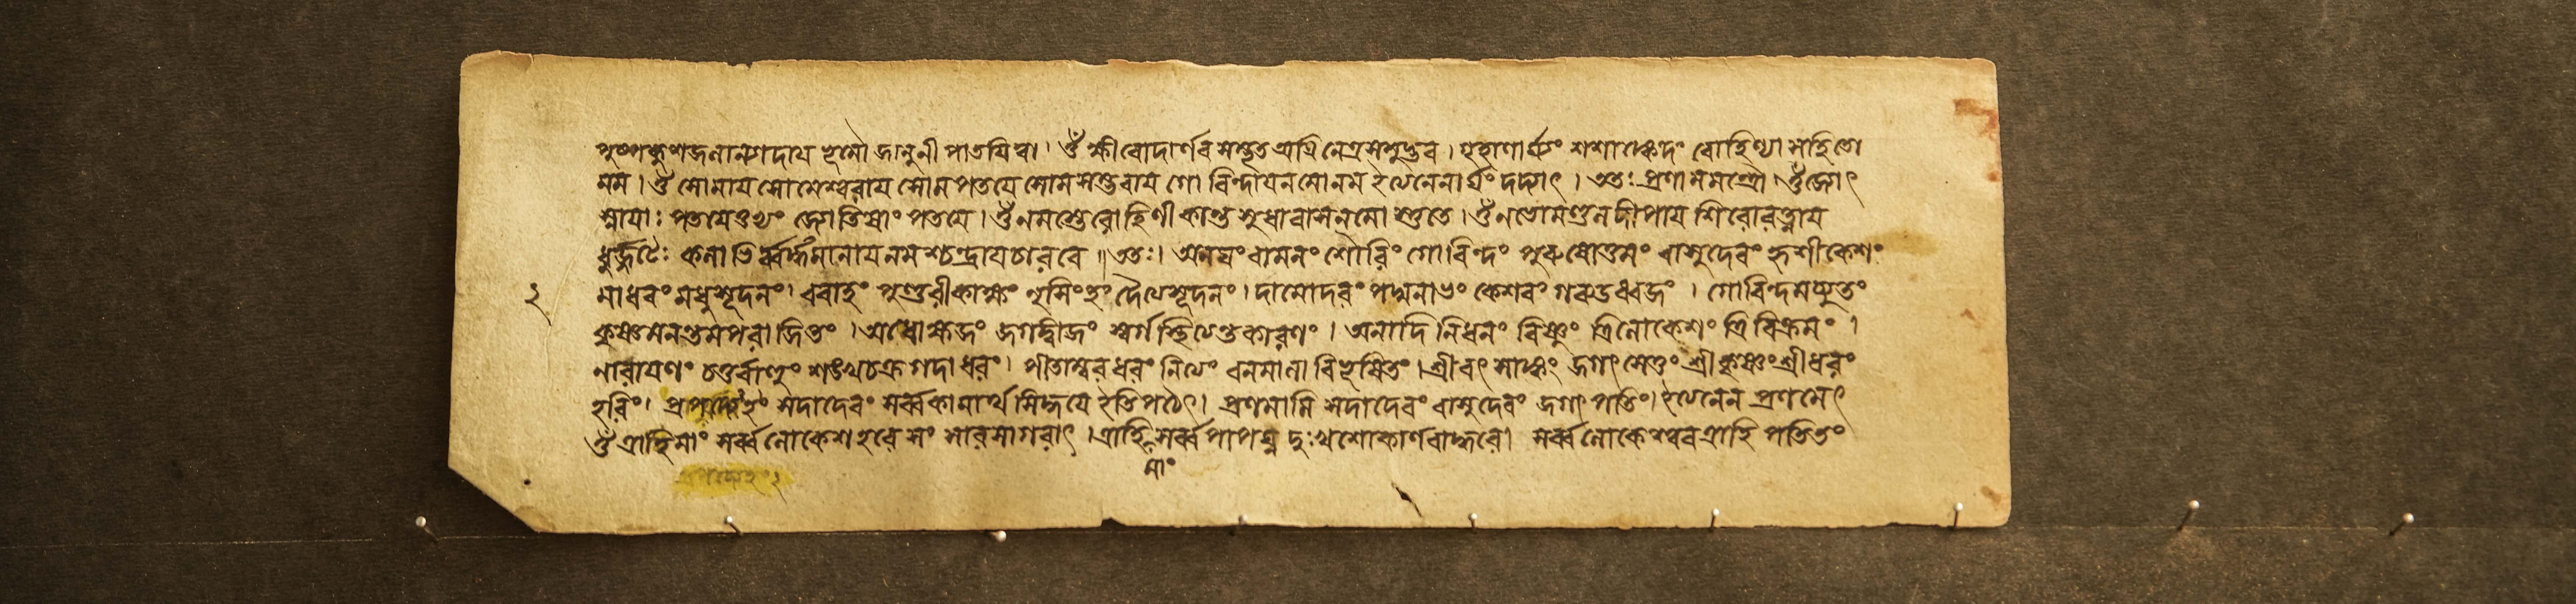 পুষ্পকুশজলান্যাদায ভূমৌ জানুনী পাতযিত্বা। ওঁ ক্ষীরোদার্ণবসম্ভূত অত্রিনেত্রসমুদ্ভব। গৃহাণার্ঘ্যং শশাঙ্কেদং রোহিণ্যা সহিতো
মম। ওঁ সোমায সোমেশ্বরায সোমপতযে সোমসম্ভবায গোবিন্দায নমো নম ইত্যনেনার্ঘ্যং দদ্যাৎ। ততঃ প্রণামমন্ত্রৌ। ওঁ জ্যোৎ
স্নাযাঃ পতযে তুভ্যং জ্যোতিষাং পতযে। ওঁ নমস্তে রোহিণীকান্ত সুধাবাস নমোস্তুতে। ওঁ নভোমণ্ডলদীপায শিরোরত্নায
ধূর্জ্জটেঃ কলাভির্ব্বর্দ্ধমানায নমশ্চন্দ্রায চারবে॥ ততঃ। অনঘং বামনং শৌরিং গোবিন্দং পুরুষোত্তমং বাসুদেবং হৃশীকেশং
২ মাধবং মধুসূদনং। বরাহং পুণ্ডরীকাক্ষং নৃসিংহং দৈত্যসূদনং। দামোদরং পদ্মনাভং কেশবং গরুডধ্বজং। গোবিন্দমচ্যুতং
কৃষ্ণমনন্তমপরাজিতং। অধোক্ষজং জগদ্বীজং স্বর্গস্থিত্যন্তকারণং। অনাদিনিধনং বিষ্ণুং ত্রিলোকেশং ত্রিবিক্রমং।
নারাযণং চতুর্ব্বাহুং শঙ্খচক্রগদাধরং। পীতাম্বরধরং নিত্যং বনমালাবিভূষিতং। শ্রীবৎসাঙ্কং জগৎসেতুং শ্রীকৃষ্ণং শ্রীধরং
হরিং। প্রপদ্যেহং সদাদেবং সর্ব্বকামার্থসিদ্ধযে ইতি পঠেৎ। প্রণমামি সদাদেবং বাসুদেবং জগৎপতিং। ইত্যনেন প্রণমেৎ
ওঁ ত্রাহি মাং সর্ব্বলোকেশ হরে সংসারসাগরাৎ। ত্রাহি সর্ব্বপাপঘ্ন দুঃখশোকার্ণবাদ্ধরে। সর্ব্বলোকেশ্বর ত্রাহি পতিতং
মাং